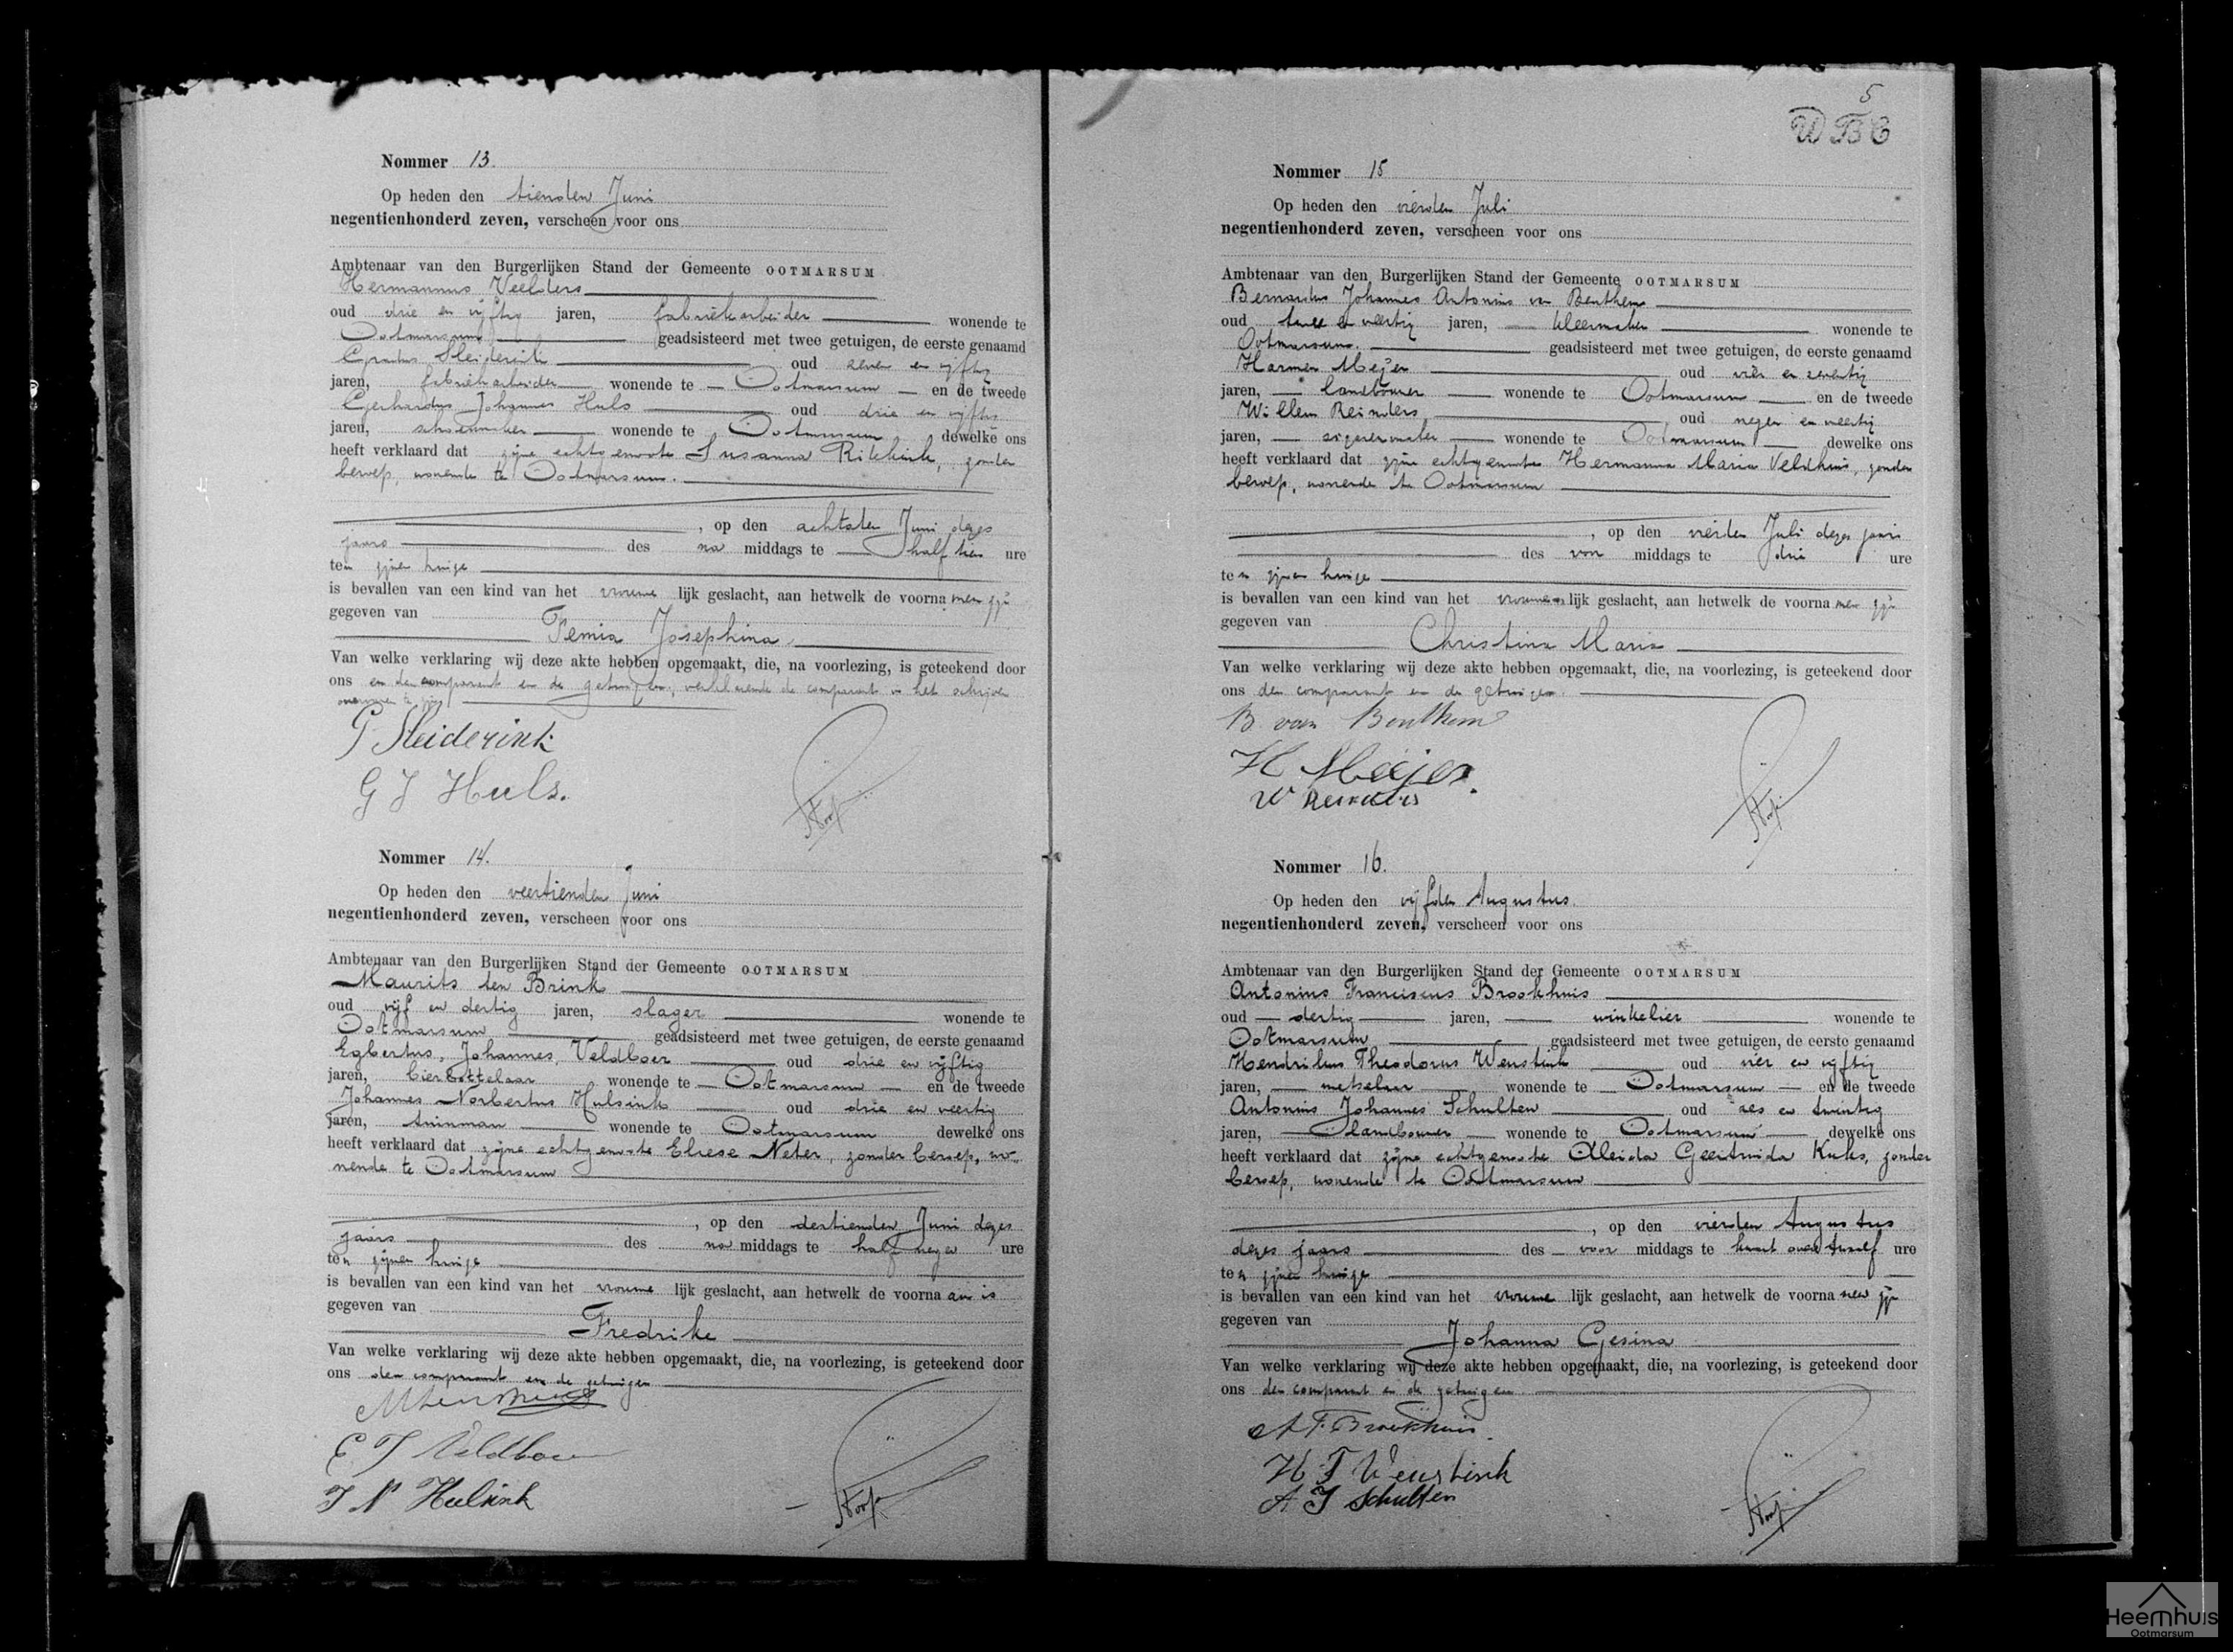 Nommer 13.
Op heden den tienden Juni
negentienhonderd zeven, verscheen voor ons
Ambtenaar van den Burgerlijken Stand der Gemeente OOTMARSUM
Hermannus Veelders
oud drie en vijftig jaren, fabriekarbeider wonende te
Ootmarsum geadsisteerd met twee getuigen, de eerste genaamd
Gradus Sleiderink oud zeven en vijftig
jaren, fabriekarbeider wonende te Ootmarsum en de tweede
Gerhardus Johannes Huls oud drie en vijftig
jaren, schoenmaker wonende te Ootmarsum dewelke ons
heeft verklaard dat zijne echtgenoote Susanna Rikkink, zonder
beroep, wonende te Ootmarsum.
, op den achtsten Juni dezes
jaars des na middags te half tien ure
ten zijnen huize
is bevallen van een kind van het vrouwe lijk geslacht, aan hetwelk de voorna men zijn
gegeven van
Femia Josephina
Van welke verklaring wij deze akte hebben opgemaakt, die, na voorlezing, is geteekend door
ons en den comparant en de getuigen, verklarende de comparant in het schrijven
onervaren te zijn
G Sleiderink
G J Huls.
Nommer 14.
Op heden den veertienden Juni
negentienhonderd zeven, verscheen voor ons
Ambtenaar van den Burgerlijken Stand der Gemeente OOTMARSUM
Maurits ten Brink
oud vijf en dertig jaren, slager wonende te
Ootmarsum geadsisteerd met twee getuigen, de eerste genaamd
Egbertus Johannes Veldboer oud drie en vijftig
jaren, bierbottelaar wonende te Ootmarsum en de tweede
Johannes Norbertus Hulsink oud drie en veertig
jaren, tuinman wonende te Ootmarsum dewelke ons
heeft verklaard dat zijne echtgenoote Eliese Neter, zonder beroep, wo-
nende te Ootmarsum
, op den dertienden Juni dezes
jaars des na middags te half negen ure
ten zijnen huize
is bevallen van een kind van het vrouwe lijk geslacht, aan hetwelk de voorna am is
gegeven van
Fredrike
Van welke verklaring wij deze akte hebben opgemaakt, die, na voorlezing, is geteekend door
ons den comparant en de getuigen
M ten Brink
E J Veldboer
J N Hulsink
5
WBC
Nommer 15
Op heden den vierden Juli
negentienhonderd zeven, verscheen voor ons
Ambtenaar van den Burgerlijken Stand der Gemeente OOTMARSUM
Bernardus Johannes Antonius van Benthem
oud twee en veertig jaren, kleermaker wonende te
Ootmarsum. geadsisteerd met twee getuigen, de eerste genaamd
Harmen Meijer oud vier en zeventig
jaren, landbouwer wonende te Ootmarsum en de tweede
Willem Reinders oud negen en veertig
jaren, sigarenmaker wonende te Ootmarsum dewelke ons
heeft verklaard dat zijne echtgenoote Hermanna Maria Veldhuis, zonder
beroep, wonende te Ootmarsum
, op den vierden Juli dezes jaars
des voor middags te drie ure
ten zijnen huize
is bevallen van een kind van het vrouwe lijk geslacht, aan hetwelk de voorna men zijn
gegeven van
Christina Maria
Van welke verklaring wij deze akte hebben opgemaakt, die, na voorlezing, is geteekend door
ons den comparant en de getuigen.
B. van Benthem
H Meijer.
W Reinders
Nommer 16.
Op heden den vijfden Augustus
negentienhonderd zeven, verscheen voor ons
Ambtenaar van den Burgerlijken Stand der Gemeente OOTMARSUM
Antonius Franciscus Brookhuis
oud dertig jaren, winkelier wonende te
Ootmarsum geadsisteerd met twee getuigen, de eerste genaamd
Hendrikus Theodorus Weustink oud vier en vijftig
jaren, metselaar wonende te Ootmarsum en de tweede
Antonius Johannes Schulten oud zes en twintig
jaren, landbouwer wonende te Ootmarsum dewelke ons
heeft verklaard dat zijne echtgenoote Aleida Geertruida Kuks, zonder
beroep, wonende te Ootmarsum
, op den vierden Augustus
dezes jaars des voor middags te kwart over twaalf ure
ten zijnen huize
is bevallen van een kind van het vrouwe lijk geslacht, aan hetwelk de voorna men zijn
gegeven van
Johanna Gesina
Van welke verklaring wij deze akte hebben opgemaakt, die, na voorlezing, is geteekend door
ons den comparant en de getuigen
A F. Broekhuis.
H T Weustink
A J Schulten
Heemhuis
Ootmarsum